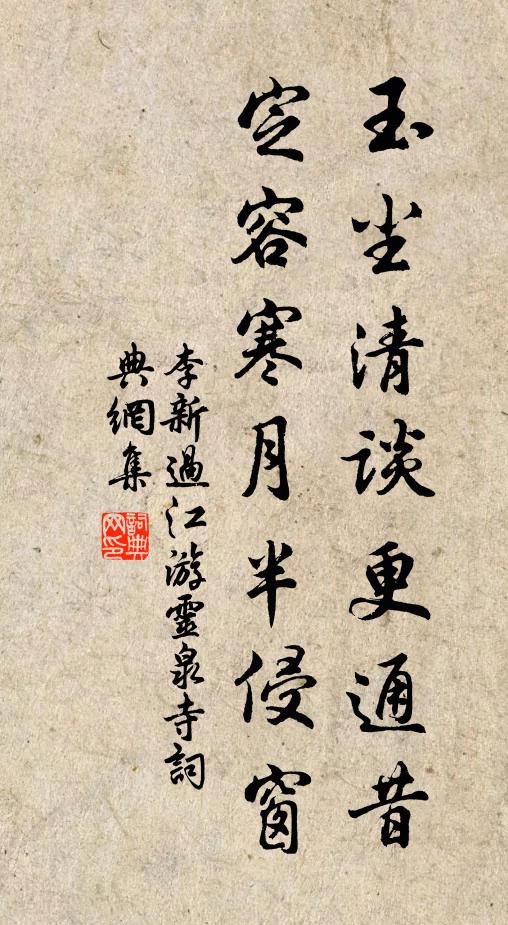 玉尘清谈更通昔
定容寒月半侵窗
李新過江游靈泉寺詞
典網集
詞典网印